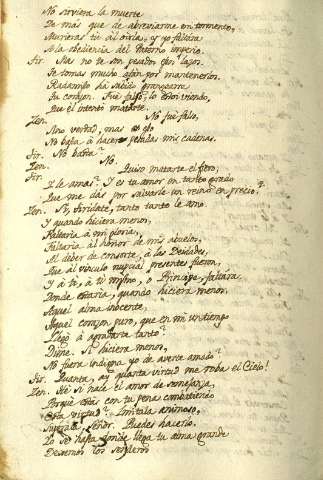 No sirviera la muerte
De más que de abreviarme un tormento,
Murieras tu al oirla, y yo faltára
A la obediencia del Paterno imperio.
Tir. Mas no te son pesados esos lazos.
Se tomas mucho afán por mantenerlos.
Radamisto ha sabido
tu corazon. Fue falso, lo estoi viendo,
Que el intentó matarte.
Zen. No fue falso,
Sino verdad, mas esto
No basta á hacer pesadas mis cadenas.
Tir. No basta?
Zen. No.
Tir. Quiso matarte el fiero,
Y le amas? Y es tu amor en tanto grado
Que me dás por salvarle un reino en precio?
Zen. Si, Tiridate, tanto tanto le amo.
Y quando hiciera menos,
Faltaria á mi gloria,
Faltaria al honor de mis abuelos,
Al deber de consorte, á las Deidades,
Que al vinculo nupcial presentes fueron,
Y á ti, á ti mismo, o Principe, faltára.
Donde estaria, quando hiciera menos,
Aquel alma inocente,
Aquel corazon puro, que en mi un tiempo
Llegó á agradarte tanto?
Dime. Si hiciera menos,
No fuera indigna yo de averte amado?
Tir. Quanta, ay quanta virtud me roba el Cielo!
Zen. Hé si hace el amor de semejanza,
Porqué estás con tu pena combatiendo
Esta virtud? Imitala animoso,
Superala Señor. Puedes hacerlo.
Yo se hasta donde llega tu alma grande
Dexemos los senderos